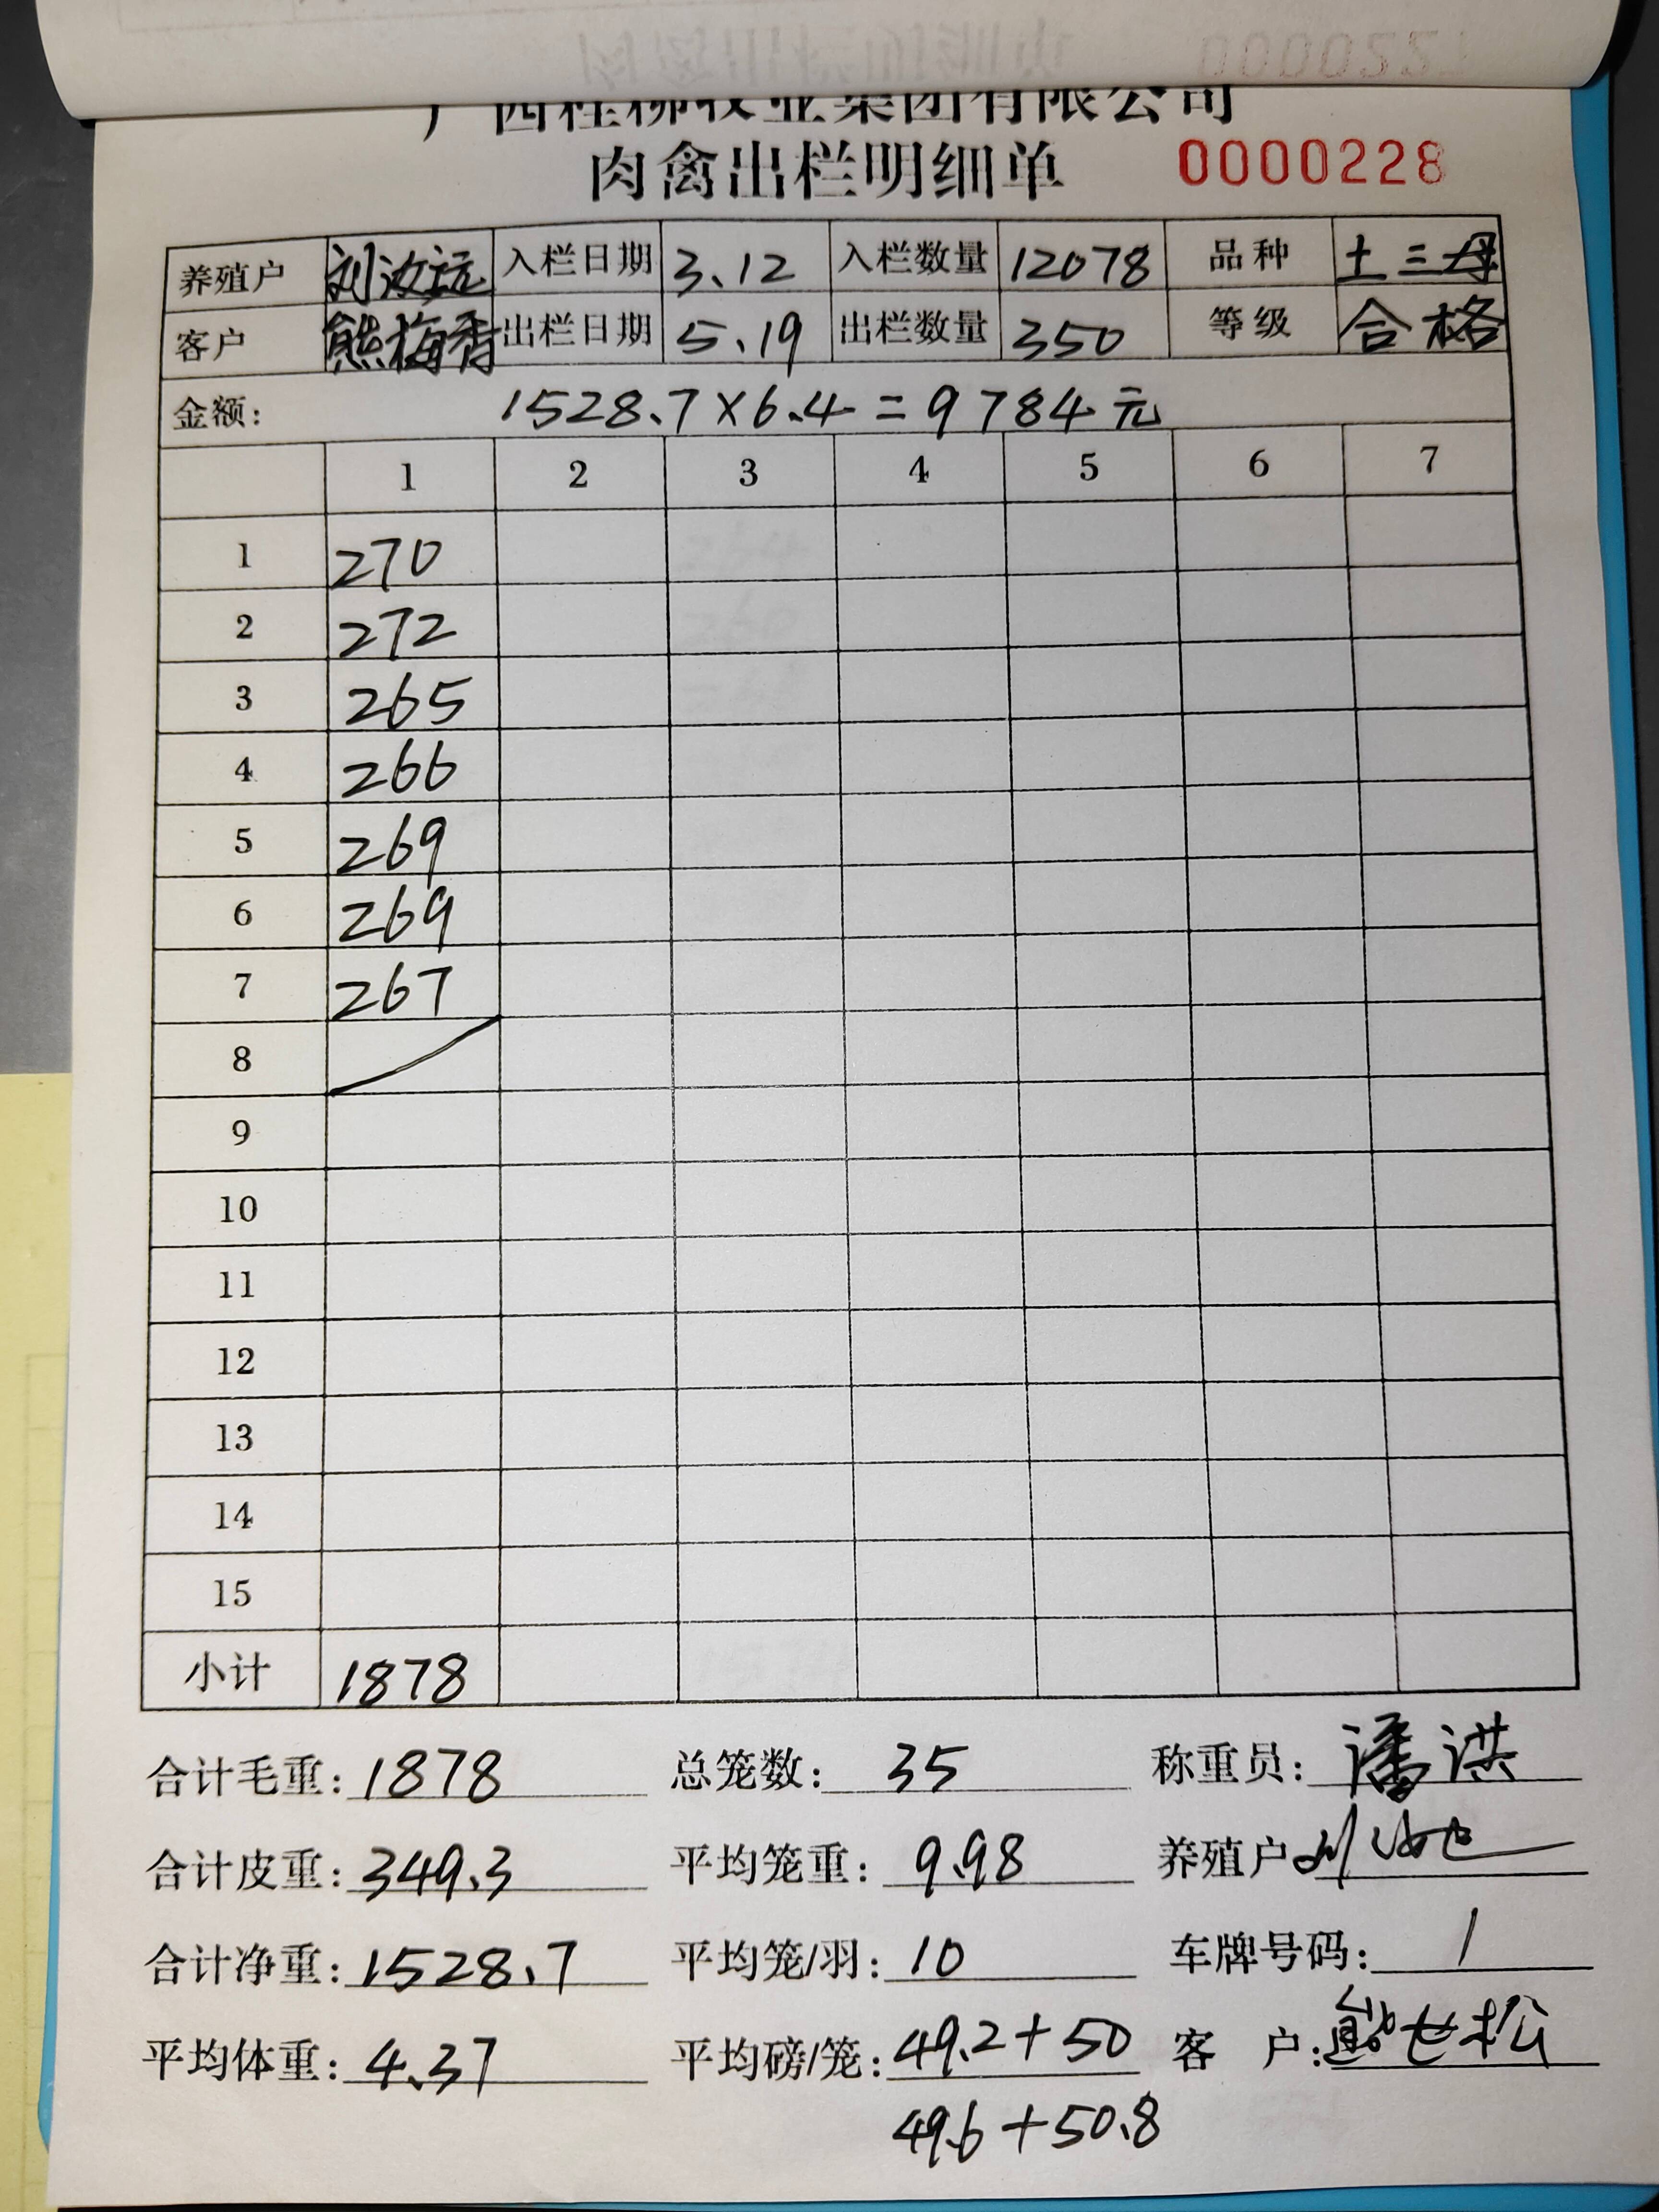 广西桂柳牧业集团有限公司
肉禽出栏明细单 0000228
养殖户 刘汝远 入栏日期 3.12 入栏数量 12078 品种 土三母
客户 熊梅秀 出栏日期 5.19 出栏数量 350 等级 合格
金额: 1528.7×6.4=9784元
1 2 3 4 5 6 7
1 270
2 272
3 265
4 266
5 269
6 269
7 267
8
9
10
11
12
13
14
15
小计 1878
合计毛重: 1878 总笼数: 35 称重员: 潘洪
合计皮重: 349.3 平均笼重: 9.98 养殖户
合计净重: 1528.7 平均笼/羽: 10 车牌号码: 1
平均体重: 4.37 平均磅/笼: 49.2+50 客 户:
49.6+50.8